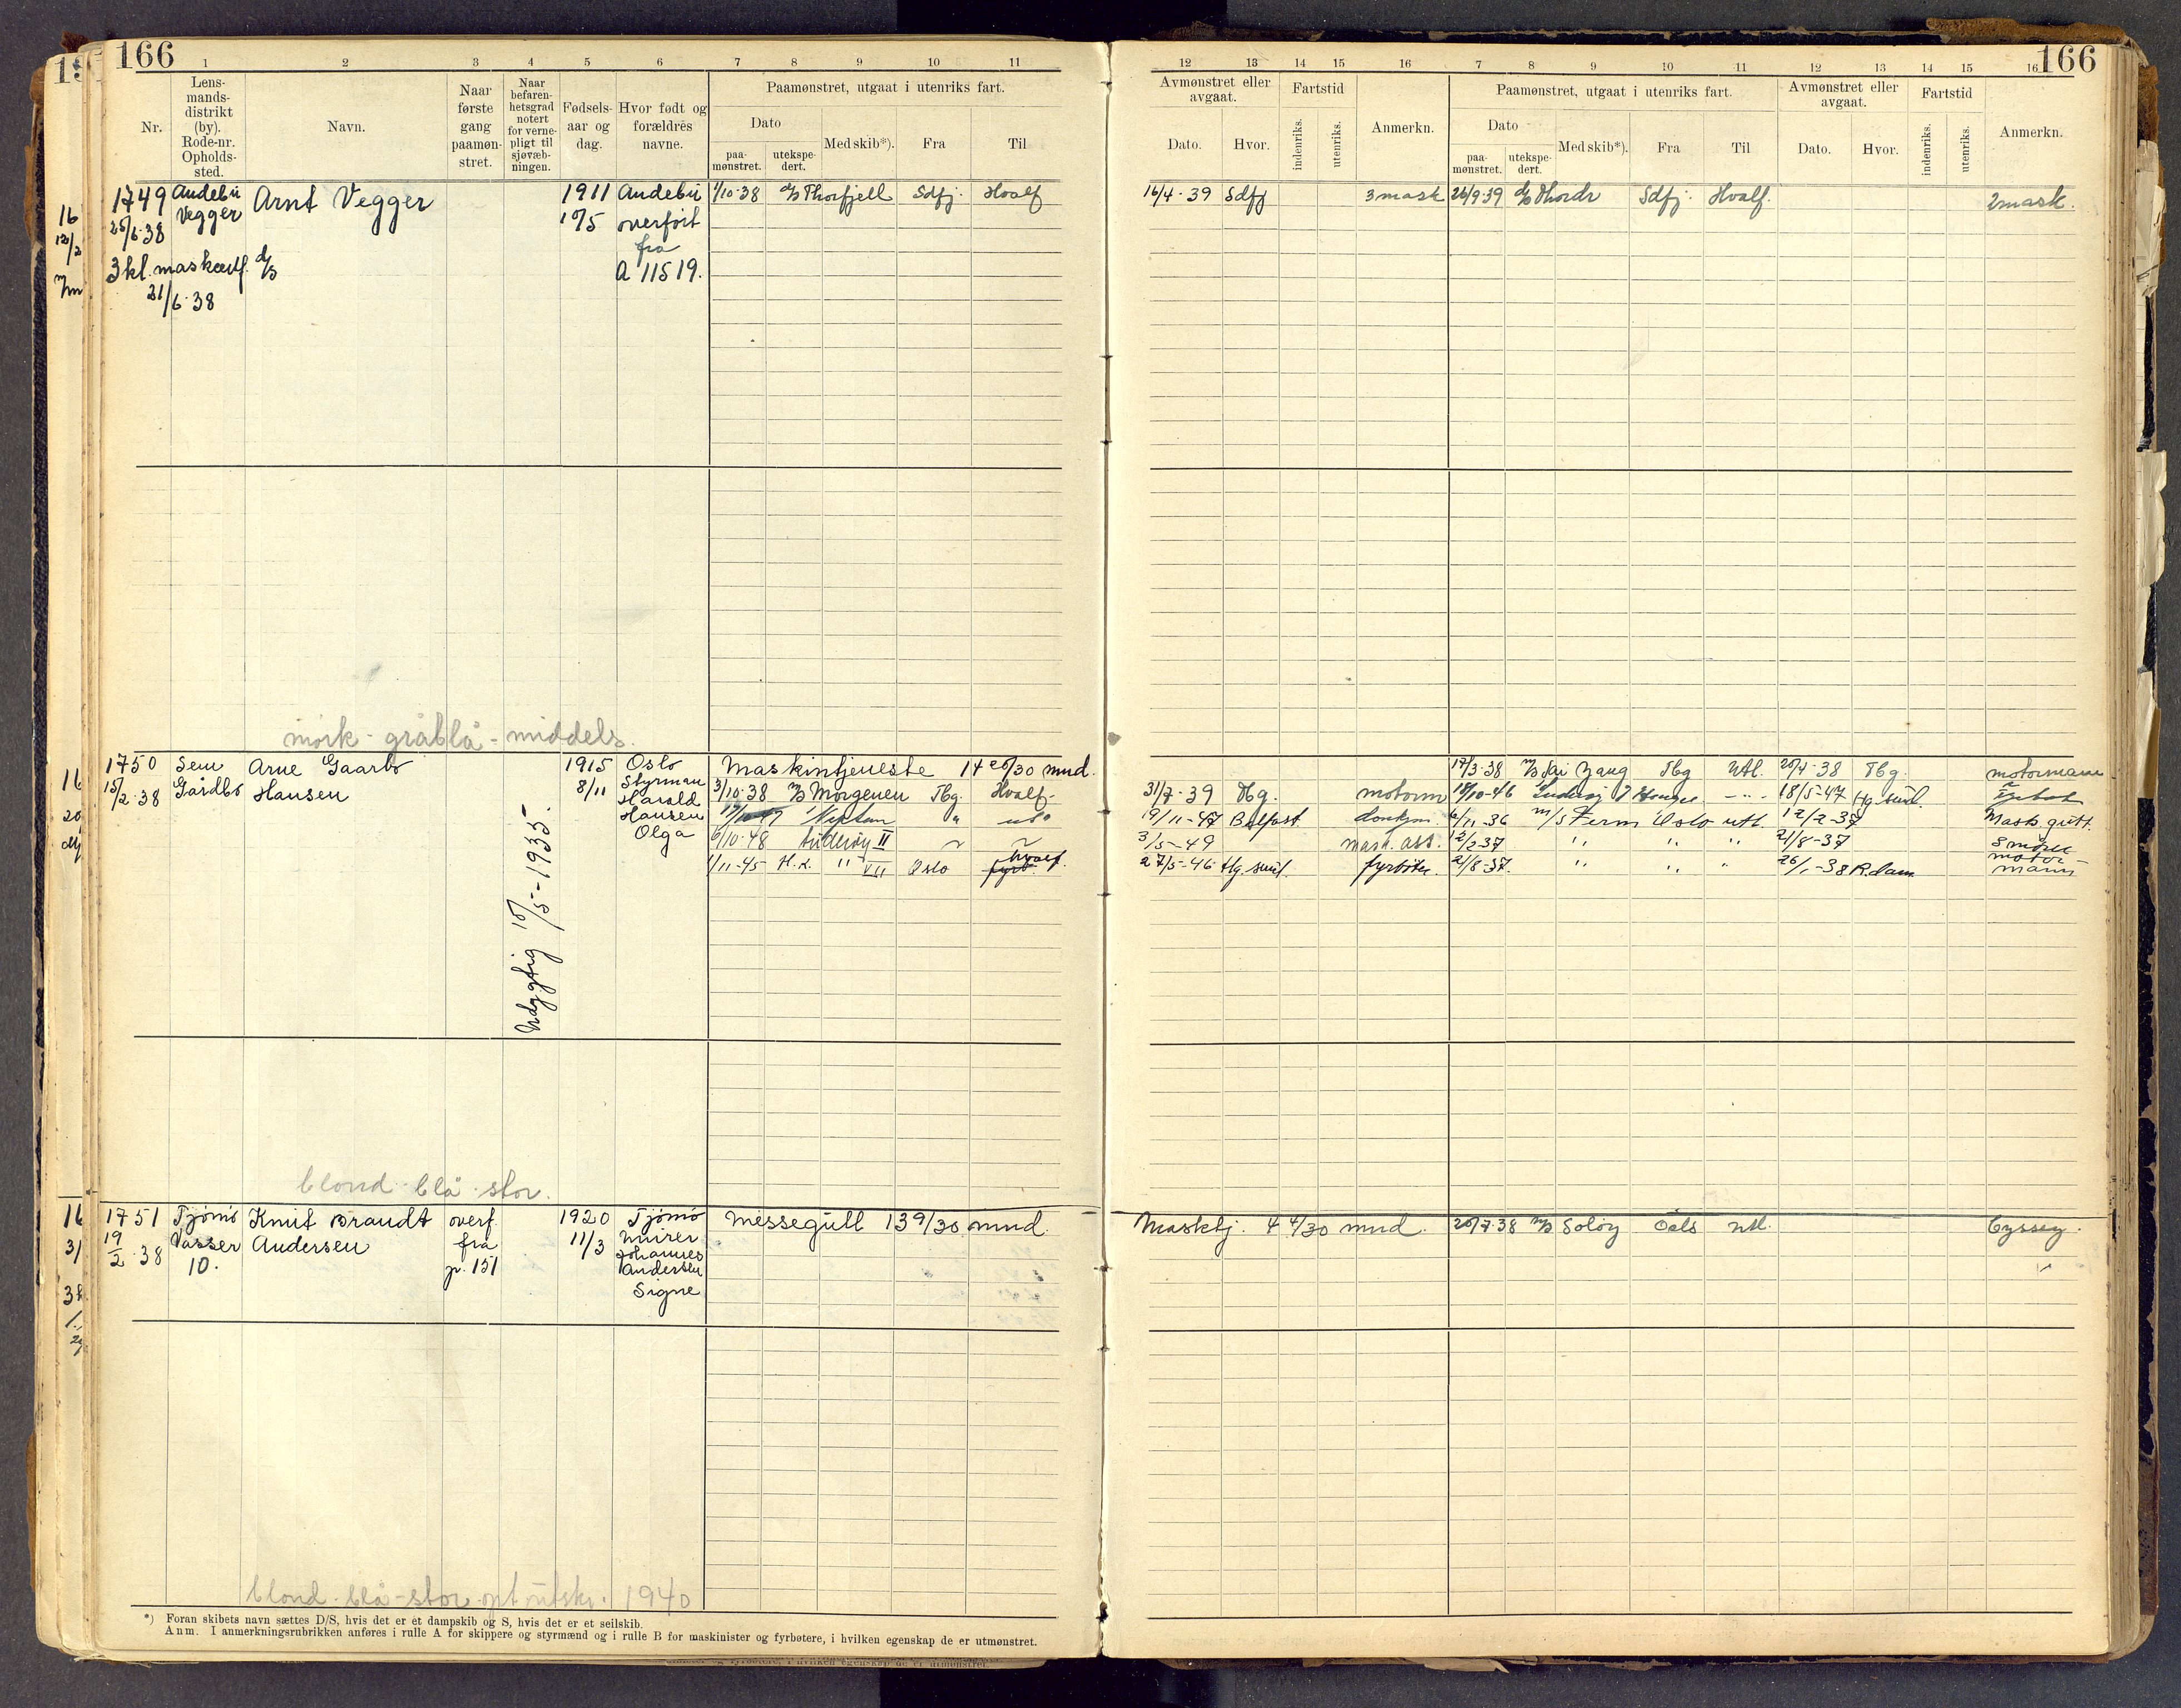 166
1 2 3 4 5 6 7 8 9 10 11
Nr.
Lens-
mands-
distrikt
(by).
Rode-nr.
Opholds-
sted.
Navn.
Naar
første
gang
paamøn-
stret.
Naar
befaren-
hetsgrad
notert
for verne-
pligt til
sjøvæb-
ningen.
Fødsels-
aar og
dag.
Hvor født og
forældres
navne.
Paamønstret, utgaat i utenriks fart.
Dato
paa-
mønstret.
utekspe-
dert.
Med skib*).
Fra
Til
1749 Andebu Arnt Vegger 1911 Andebu 1/10-38 d/s Thorfjell Sdfj. Hvalf
25/6-38 Vegger 10/5 overført
fra
3 kl. maskcertf. d/s A 11519.
21/6-38
mørk - gråblå - middels
1750 Sem Arne Gaarbo 1915 Oslo Maskintjeneste 14 20/30 mnd.
15/2-38 Gårdbo Hansen 8/11 Styrman 3/10-38 m/s Morgenen Tbg. Hvalf-
Harald
Hansen Neptun " utl
Olga 6/10-48 Suderøy II ~ ~
1/11-45 H.K. " VII Oslo hvalf.
Udygtig 10/5-1935-
blond blå stor.
1751 Tjømø Knut Brandt overf 1920 Tjømø Messegutt 13 9/30 mnd.
19/2-38 Vasser Andersen fra 11/3 murer
10. p. 151 Johannes
Andersen
Signe
blond - blå - stor opt utskr. 1940
*) Foran skibets navn sættes D/S, hvis det er et dampskib og S, hvis det er et seilskib.
Anm. I anmerkningsrubrikken anføres i rulle A for skippere og styrmænd og i rulle B for maskinister og fyrbøtere, i hvilken egenskap de er utmønstret.
166
12 13 14 15 16 7 8 9 10 11 12 13 14 15 16
Avmønstret eller
avgaat.
Dato.
Hvor.
Fartstid
indenriks.
utenriks.
Anmerkn.
Paamønstret, utgaat i utenriks fart.
Dato
paa-
mønstret.
utekspe-
dert.
Med skib*).
Fra
Til
Avmønstret eller
avgaat.
Dato.
Hvor.
Fartstid
indenriks.
utenriks.
Anmerkn.
16/4-39 Sdfj 3 mask 26/9 39 d/s Thordr Sdfj. Hvalf. 2 mask.
17/3-38 m/s Tai Zang Tbg Utl. 20/4-38 Tbg. motormann
31/7-39 Tbg. motorm 18/10-46 18/5-47 Hg.sund.
19/11-47 Belfast donkym. 6/11-36 m/s Fern Oslo utl. 12/2-37 Mask.gutt.
3/5-49 mask. ass. 12/2-37 " " " 21/8-37 Smører
27/5-46 Hg.sund. fyrbøter. 21/8-37. " " " 26/1-38 R.dam motor-
mann
Masktj. 4 4/30 mnd. 20/7-38 m/s Soløy Oslo utl.